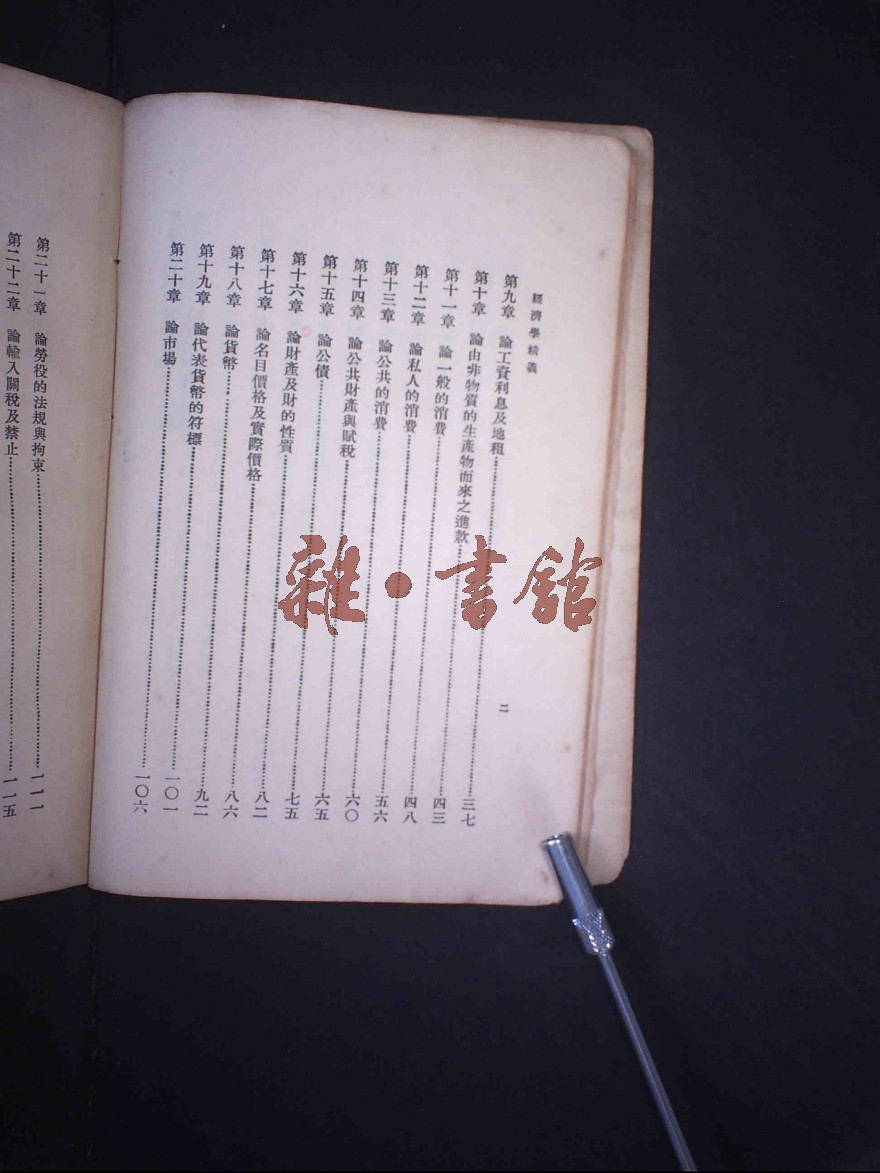 經濟學精義
二
第九章 論工資利息及地租……三七
第十章 論由非物質的生產物而來之進款……四三
第十一章 論一般的消費……四八
第十二章 論私人的消費……五六
第十三章 論公共的消費……六〇
第十四章 論公共財產與賦稅……六五
第十五章 論公債……七五
第十六章 論財產及財的性質……八二
第十七章 論名目價格及實際價格……八六
第十八章 論貨幣……九二
第十九章 論代表貨幣的符標……一〇一
第二十章 論市場……一〇六
第二十一章 論勞役的法規與拘束……一一一
第二十二章 論輸入關稅及禁止……一一五
雜·書館